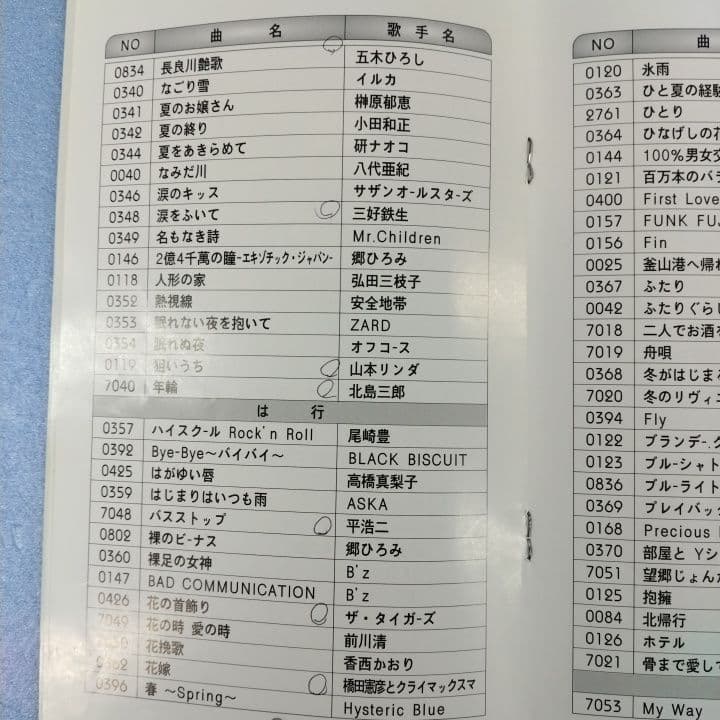 NO 曲 名 歌 手 名
0834 長良川艶歌 五木ひろし
0340 なごり雪 イルカ
0341 夏のお嬢さん 榊原郁恵
0342 夏の終り 小田和正
0344 夏をあきらめて 研ナオコ
0040 なみだ川 八代亜紀
0346 涙のキッス サザンオールスターズ
0348 涙をふいて 三好鉄生
0349 名もなき詩 Mr.Children
0146 2億4千萬の瞳-エキゾチック・ジャパン- 郷ひろみ
0118 人形の家 弘田三枝子
0352 熱視線 安全地帯
0353 眠れない夜を抱いて ZARD
0354 眠れぬ夜 オフコース
0119 狙いうち 山本リンダ
7040 年輪 北島三郎
は 行
0357 ハイスクール Rock'n Roll 尾崎豊
0392 Bye-Bye〜バイバイ〜 BLACK BISCUIT
0425 はがゆい唇 高橋真梨子
0359 はじまりはいつも雨 ASKA
7048 バスストップ 平浩二
0802 裸のビーナス 郷ひろみ
0360 裸足の女神 B'z
0147 BAD COMMUNICATION B'z
0426 花の首飾り ザ・タイガーズ
7049 花の時 愛の時 前川清
花挽歌 香西かおり
花嫁 橋田憲彦とクライマックスマ
0396 春 〜Spring〜 Hysteric Blue
NO 曲
0120 氷雨
0363 ひと夏の経験
2761 ひとり
0364 ひなげしの花
0144 100%男女交
0121 百万本のバラ
0400 First Love
0157 FUNK FUJ
0156 Fin
0025 釜山港へ帰れ
0367 ふたり
0042 ふたりぐらし
7018 二人でお酒を
7019 舟唄
0368 冬がはじまる
7020 冬のリヴィエ
0394 Fly
0122 ブランデー.グ
0123 ブルーシャト
0836 ブルーライト
0369 プレイバック
0168 Precious
0370 部屋と Yシ
7051 望郷じょんか
0125 抱擁
0084 北帰行
0126 ホテル
7021 骨まで愛して
7053 My Way